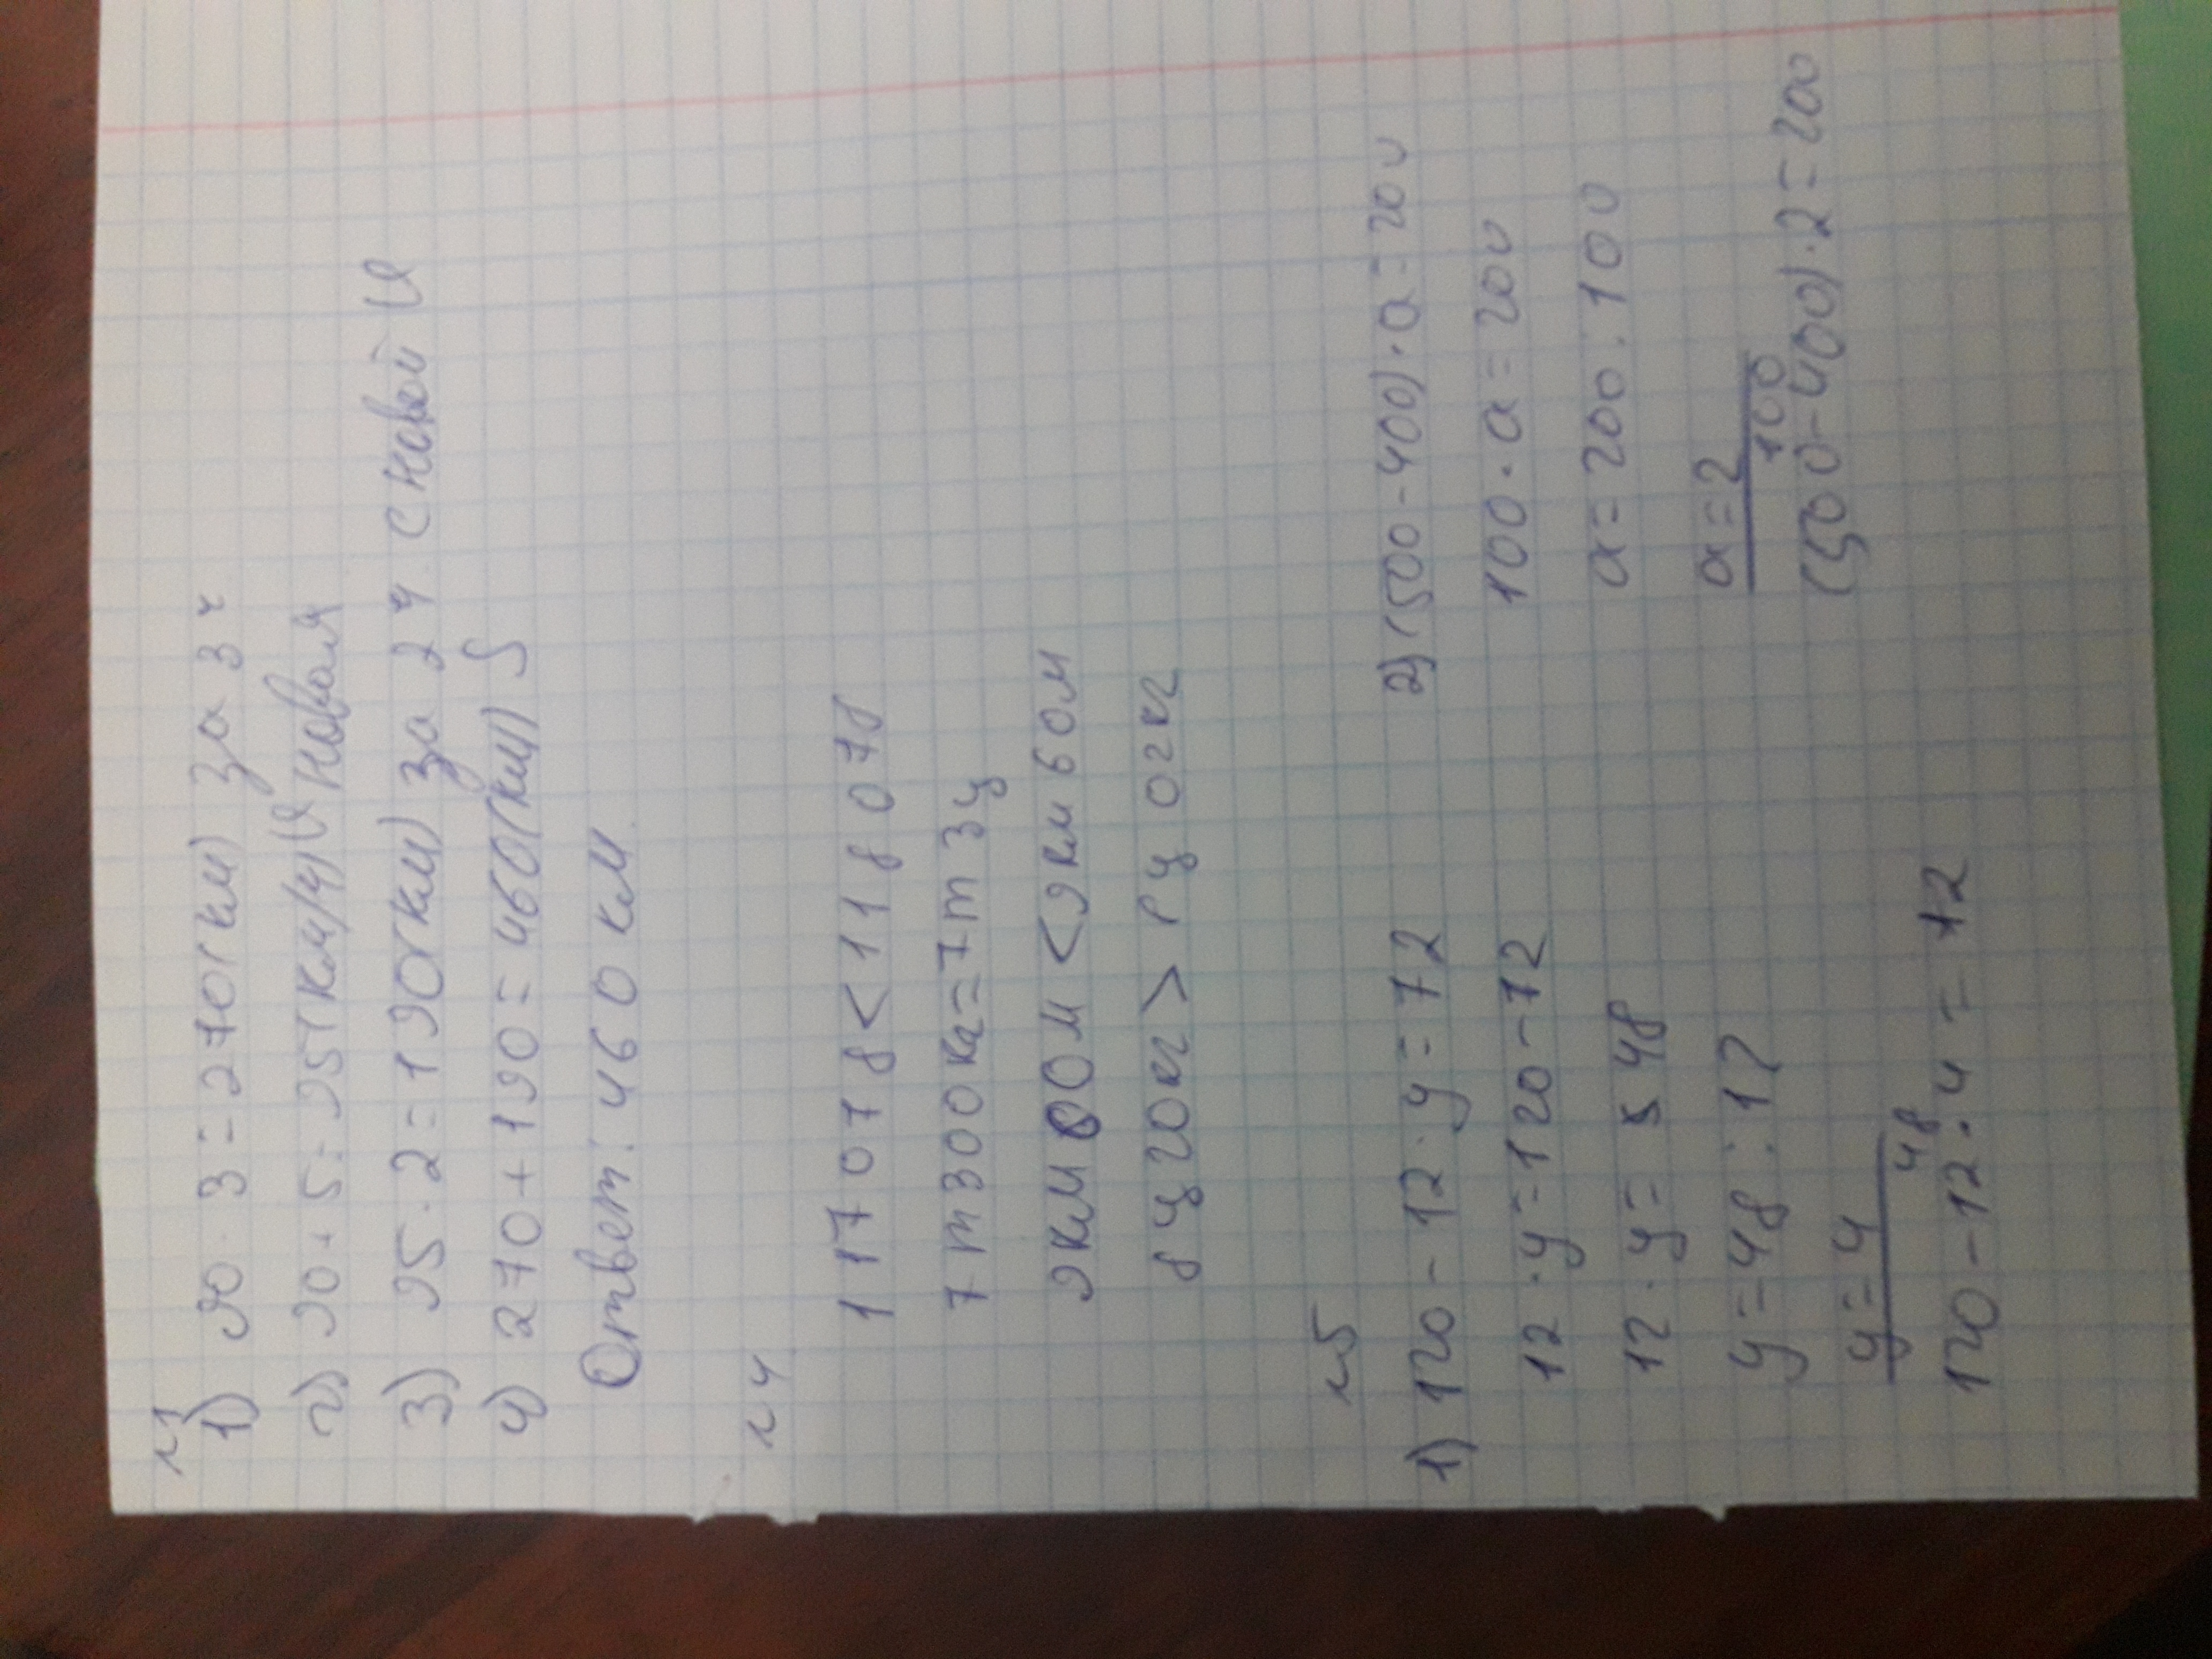 №1
1) 90 · 3 = 270 (км) за 3 ч
2) 90 + 5 = 95 (км/ч) V новая
3) 95 · 2 = 190 (км) за 2 ч с новой V
4) 270 + 190 = 460 (км) S
Ответ: 460 км.
№4
117078 < 118078
7т 300 кг = 7т 3ц
9км 00м < 9км 60м
8ц 20кг > 8ц 02кг
№5
1) 120 - 12 · y = 72
12 · y = 120 - 72
12 · y = 48
y = 48 : 12
y = 4
48
120 - 12 · 4 = 72
2) (500 - 400) · a = 200
100 · a = 200
a = 200 : 100
a = 2
100
(500 - 400) · 2 = 200